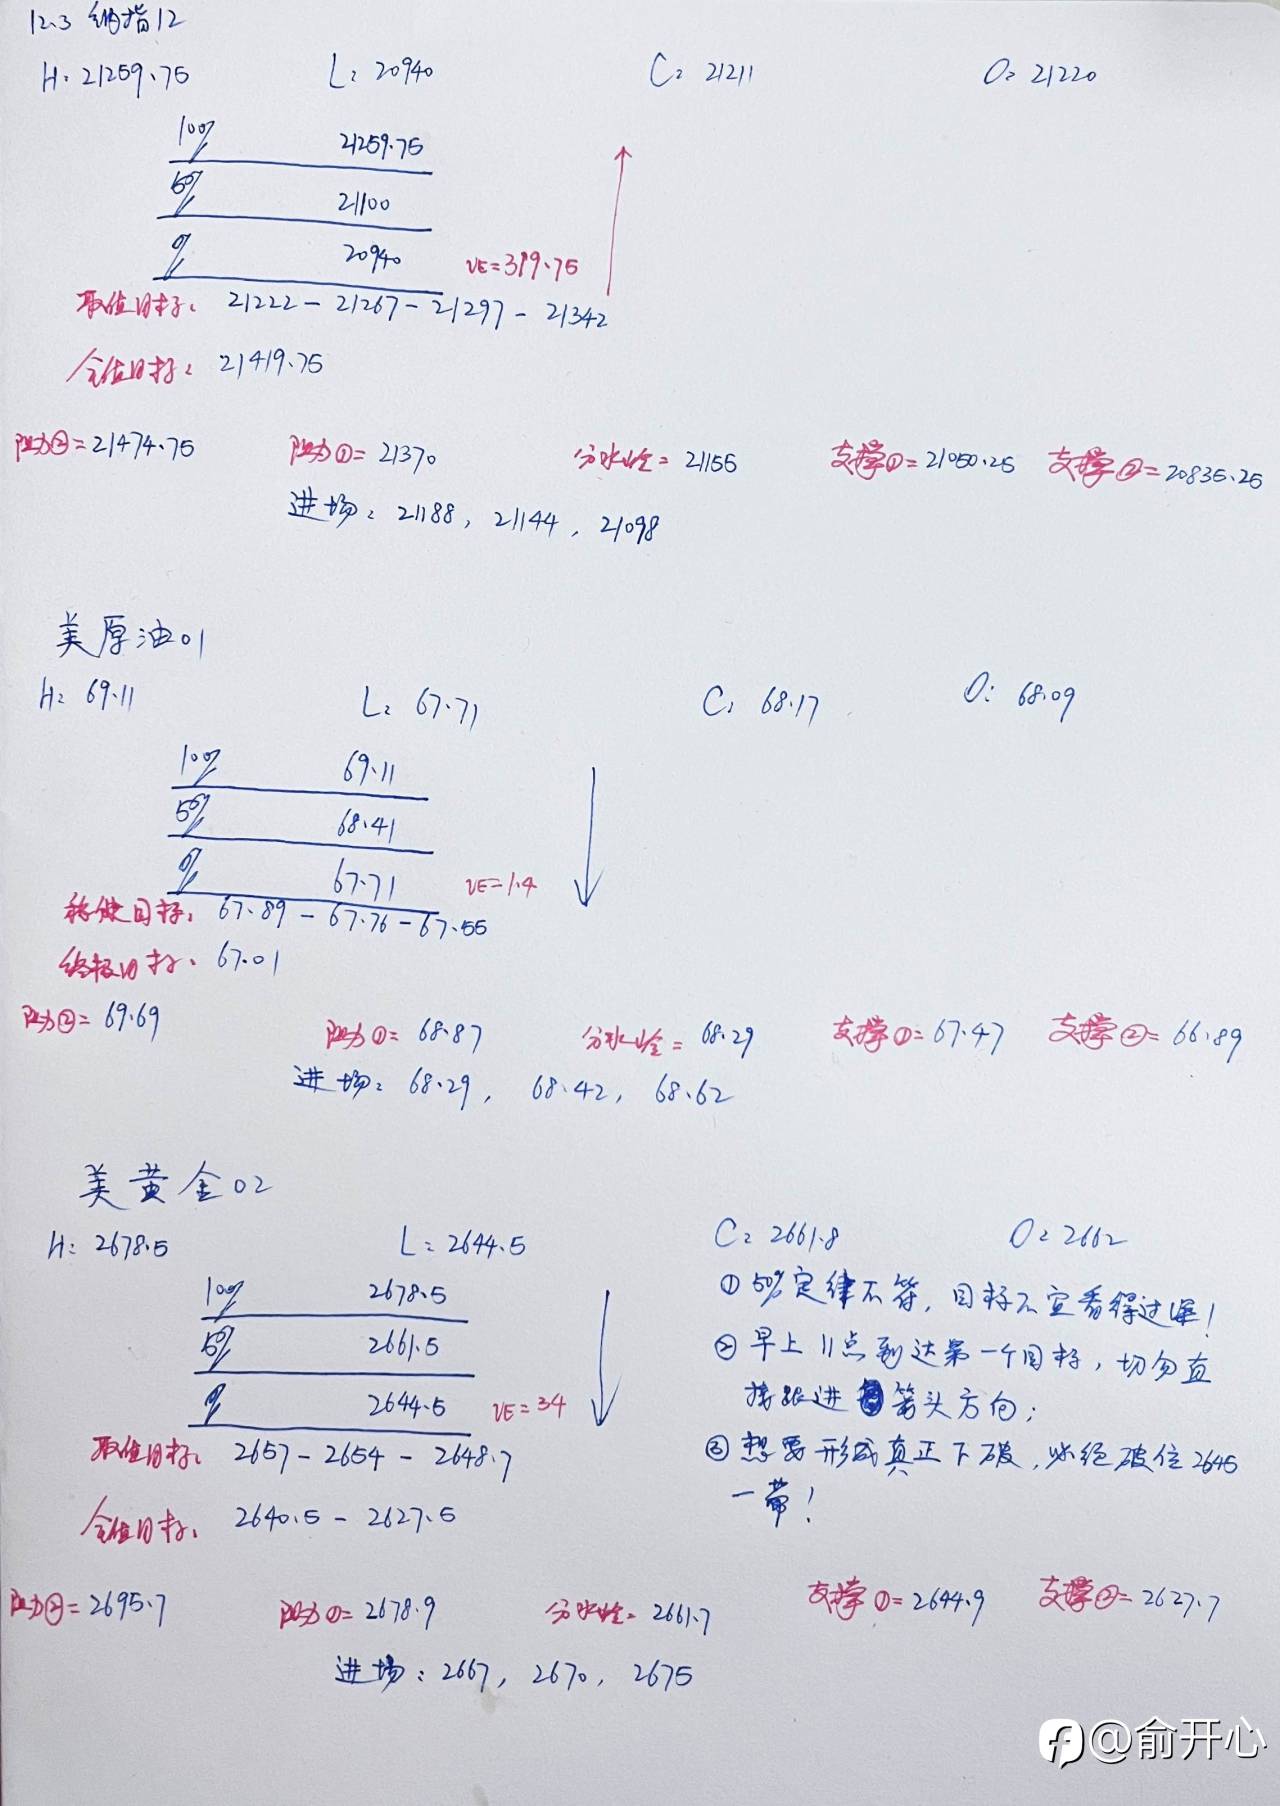 12.3 纳指12
H: 21259.75 L: 20940 C: 21211 O: 21220
100% 21259.75
50% 21100
0% 20940 VE=319.75
取值目标: 21222 - 21267 - 21297 - 21342
全值目标: 21419.75
阻力②=21474.75 阻力①=21370 分水岭=21155 支撑①=21050.25 支撑②=20835.25
进场: 21188, 21144, 21098
美原油01
H: 69.11 L: 67.71 C: 68.17 O: 68.09
100% 69.11
50% 68.41
0% 67.71 VE=1.4
稳健目标: 67.89 - 67.76 - 67.55
终极目标: 67.01
阻力②=69.69 阻力①=68.87 分水岭=68.29 支撑①=67.47 支撑②=66.89
进场: 68.29, 68.42, 68.62
美黄金02
H: 2678.5 L: 2644.5 C: 2661.8 O: 2662
100% 2678.5
50% 2661.5
0% 2644.5 VE=34
取值目标: 2657 - 2654 - 2648.7
全值目标: 2640.5 - 2627.5
①50%定律不符,目标不宜看得过深!
②早上11点到达第一个目标,切勿直
接跟进箭头方向;
③想要形成真正下破,必须破位2645
一带!
阻力②=2695.7 阻力①=2678.9 分水岭=2661.7 支撑①=2644.9 支撑②=2627.7
进场: 2667, 2670, 2675
@俞开心